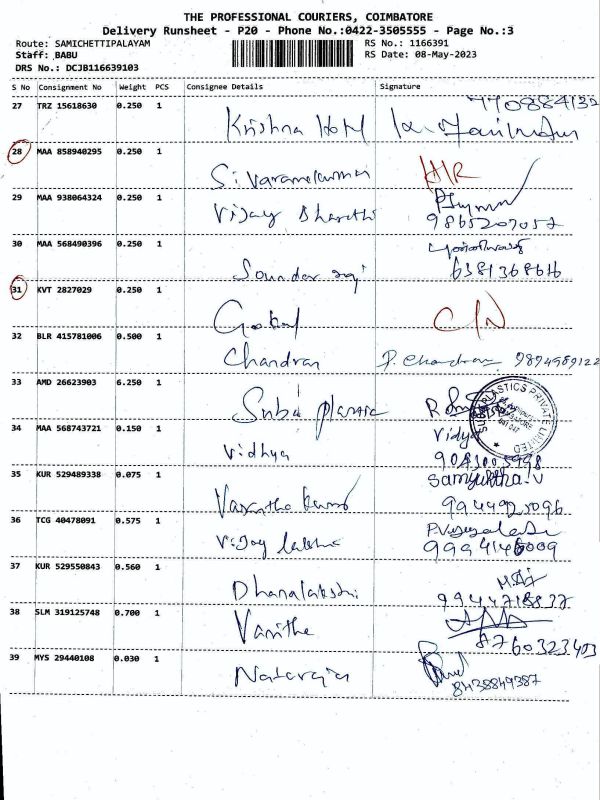 THE PROFESSIONAL COURIERS, COIMBATORE
Delivery Runsheet - P20 - Phone No.:0422-3505555 - Page No.:3
Route: SAMICHETTIPALAYAM
Staff: BABU
DRS No.: DCJB116639103
RS No.: 1166391
RS Date: 08-May-2023
S No Consignment No Weight PCS Consignee Details Signature
27 TRZ 15618630 0.250 1 Krishna Hotel
28 MAA 858940295 0.250 1 Sivaramakumar
29 MAA 938064324 0.250 1 Vijay Bharathi 9865207057
30 MAA 568490396 0.250 1 Soundar
31 KVT 2827029 0.250 1 Gokul
32 BLR 415781006 0.500 1 Chandran P. Chandran 9894989122
33 AMD 26623903 6.250 1 Suba
PLASTICS PRIVATE LIMITED
34 MAA 568743721 0.150 1 Vidhya Vidya
35 KUR 529489338 0.075 1 Samyuktha.V
36 TCG 40478091 0.575 1 Vijay
37 KUR 529550843 0.560 1 Dhanalakshi
38 SLM 319125748 0.700 1 Vanitha 8760323403
39 MYS 29440108 0.030 1 Natarajan 8438849387